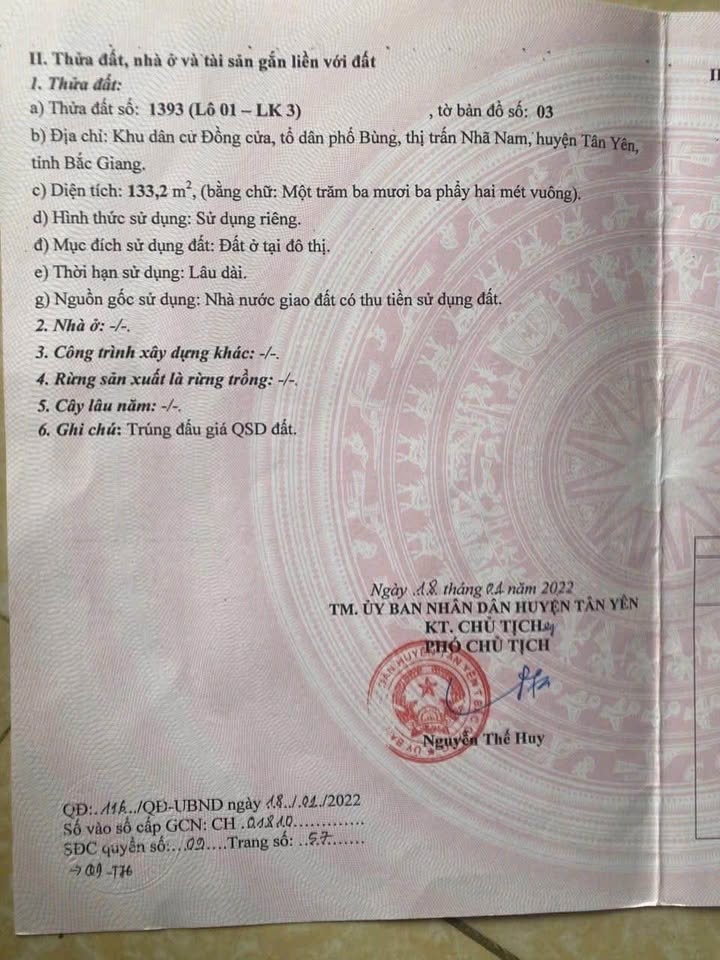 II. Thửa đất, nhà ở và tài sản gắn liền với đất
1. Thửa đất:
a) Thửa đất số: 1393 (Lô 01 – LK 3) , tờ bản đồ số: 03
b) Địa chỉ: Khu dân cư Đồng cửa, tổ dân phố Bùng, thị trấn Nhã Nam, huyện Tân Yên,
tỉnh Bắc Giang.
c) Diện tích: 133,2 m², (bằng chữ: Một trăm ba mươi ba phẩy hai mét vuông).
d) Hình thức sử dụng: Sử dụng riêng.
đ) Mục đích sử dụng đất: Đất ở tại đô thị.
e) Thời hạn sử dụng: Lâu dài.
g) Nguồn gốc sử dụng: Nhà nước giao đất có thu tiền sử dụng đất.
2. Nhà ở: -/-.
3. Công trình xây dựng khác: -/-.
4. Rừng sản xuất là rừng trồng: -/-.
5. Cây lâu năm: -/-.
6. Ghi chú: Trúng đấu giá QSD đất.
Ngày 18 tháng 01 năm 2022
TM. ỦY BAN NHÂN DÂN HUYỆN TÂN YÊN
KT. CHỦ TỊCH
PHÓ CHỦ TỊCH
Nguyễn Thế Huy
QĐ:../QĐ-UBND ngày 18../01./2022
Số vào sổ cấp GCN: CH .01810.............
SĐC quyển số:...09....Trang số: ..57.......